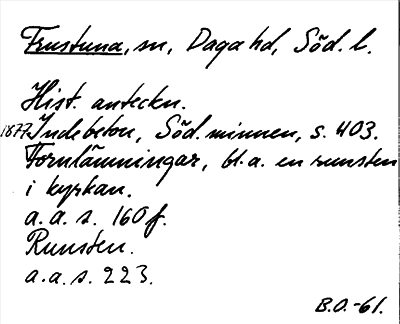 Frustuna, sn, Daga hd, Söd. l.
Hist. anteckn.
1877 Indebetou, Söd. minnen, s. 403.
Fornlämningar, bl.a. en runsten
i kyrkan.
a.a.s. 160 f.
Runsten.
a.a.s. 223.
B.O.-61.